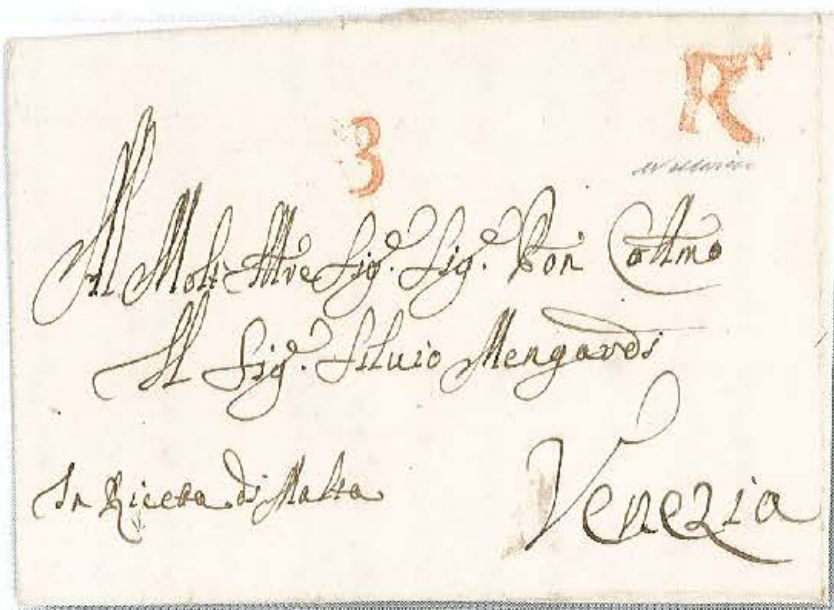 R
3
All Molt Illre Sig.e Sig.e Pon Collmo
Il Sig.e Siluio Mengardi
In Riceta di Malta
Venezia